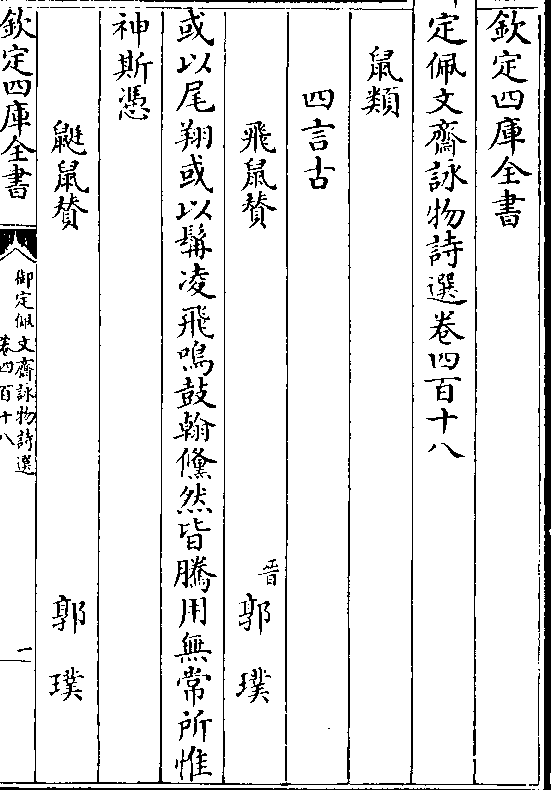 欽定四庫全書
定佩文齋詠物詩選卷四百十八
鼠類
四言古
飛鼠贊 晉 郭璞
或以尾翔或以髯凌飛鳴鼓翰儵然皆騰用無常所惟
神斯憑
鼮鼠贊 郭璞
欽定四庫全書
御定佩文齋詠物詩選
卷四百十八
一